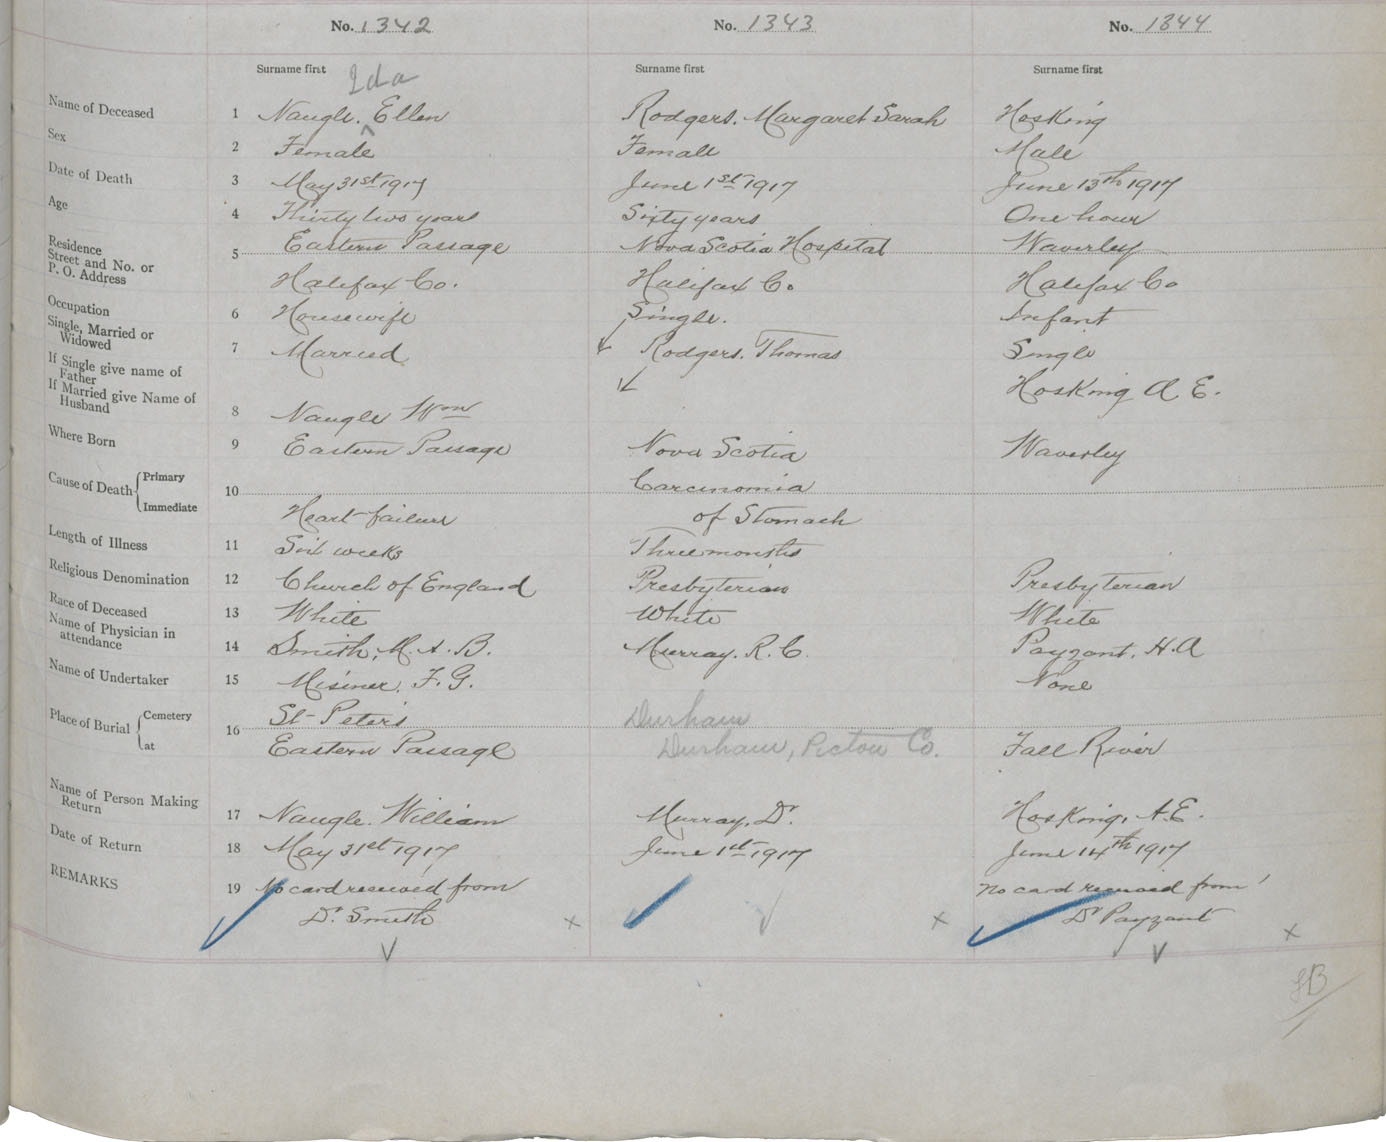 No. 1342 No. 1343 No. 1344
Surname first Surname first Surname first
Ida
Name of Deceased 1 Naugle. ^ Ellen Rodgers. Margaret Sarah Hosking
Sex 2 Female Female Male
Date of Death 3 May 31st 1917 June 1st 1917 June 13th 1917
Age 4 Thirty two years Sixty years One hour
Residence Eastern Passage Nova Scotia Hospital Waverley
Street and No. or 5
P. O. Address Halifax Co. Halifax Co. Halifax Co
Occupation 6 Housewife Single. Infant
Single, Married or
Widowed 7 Married Rodgers. Thomas Single
If Single give name of
Father Hosking A E.
If Married give Name of
Husband 8 Naugle Wm
Where Born 9 Eastern Passage Nova Scotia Waverley
Cause of Death Primary 10 Carcinomia
Immediate Heart failure of Stomach
Length of Illness 11 Six weeks Three months
Religious Denomination 12 Church of England Presbyterian Presbyterian
Race of Deceased 13 White White White
Name of Physician in
attendance 14 Smith, M. A. B. Murray. R. C. Payzant. H. A
Name of Undertaker 15 Misener. F. G. None
Place of Burial Cemetery 16 St- Peter's Durham
at Eastern Passage Durham, Pictou Co. Fall River
Name of Person Making
Return 17 Naugle. William Murray, Dr. Hosking, A. E.
Date of Return 18 May 31st 1917 June 1st 1917 June 14th 1917
REMARKS 19 No card received from No card received from
Dr. Smith x x Dr Payzant x